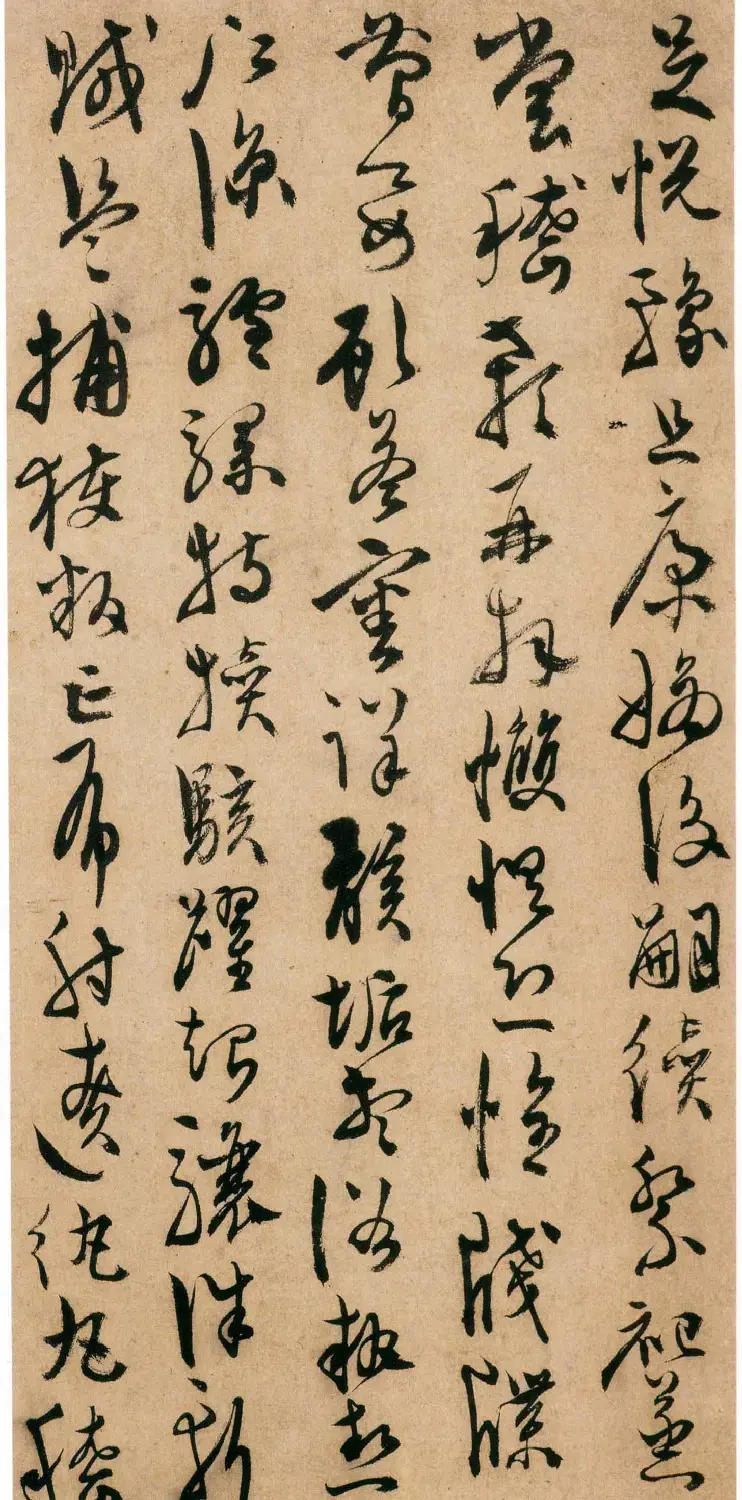 足悅豫且康嫡後嗣續祭祀蒸
嘗稽顙再拜𢥠惧恐惶牋牒
簡要顧答審詳骸垢想浴執熱
願涼驢騾特犢駭躍超驤誅斬
賊盜捕獲叛亡布射遼紈丸嵇